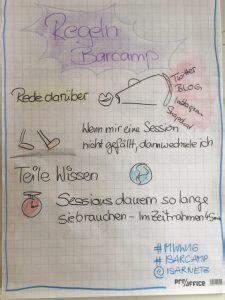 Regeln
Barcamp
Rede darüber
Twitter
BLOG
Instagram
Snapchat
Wenn mir eine Session
nicht gefällt, dann wechsle ich
Teile Wissen
Sessions dauern so lange
sie brauchen - Im Zeitrahmen 45min
#MWW16
#ISARCAMP
@ISARNETZ
pro/office